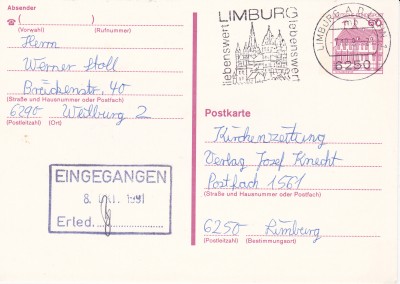 Absender
(            )
(Vorwahl) (Rufnummer)
Herrn
Werner Stoll
Brückenstr. 40
(Straße und Hausnummer oder Postfach)
6290 Weilburg 2
(Postleitzahl) (Ort)
LIMBURG
liebenswert
lebenswert
LIMBURG A.D.
60
6250
EINGEGANGEN
8. 1991
Erled.
Postkarte
Kirchenzeitung
Verlag Josef Knecht
Postfach 1561
(Straße und Hausnummer oder Postfach)
6250 Limburg
(Postleitzahl) (Bestimmungsort)